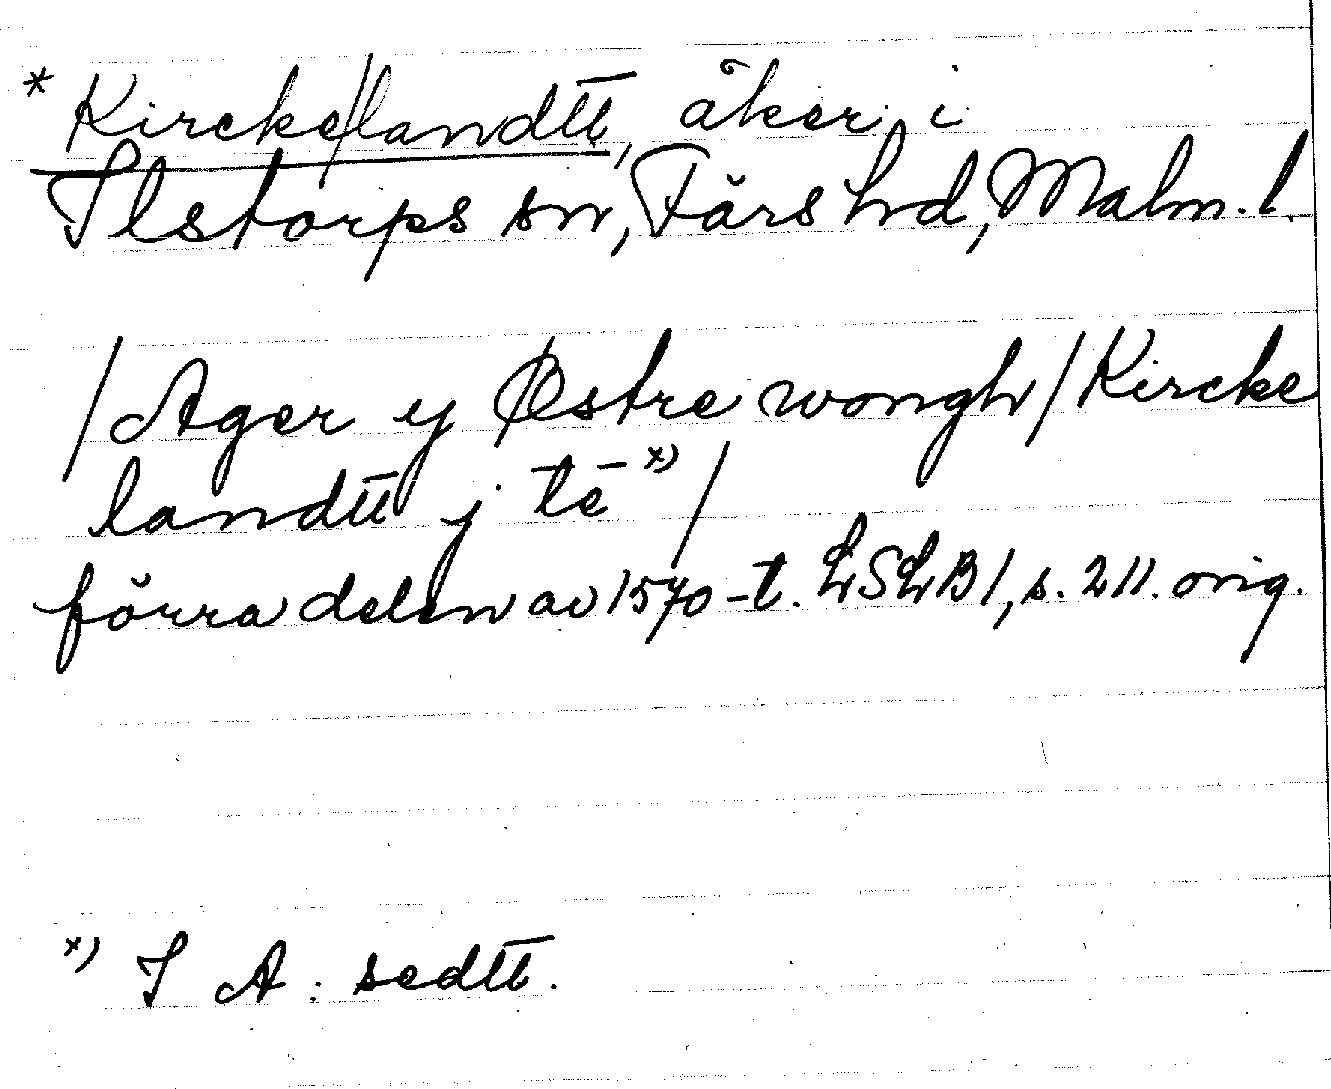 * Kircke/landtt, åker i
Ilstorps sn, Färs hd, Malm. l.
/Ager y Østre wongh/Kircke
landtt j tē x)/
förra delen av 1570-t. LSLB1, s. 211. orig.
x) I A: sedtt.